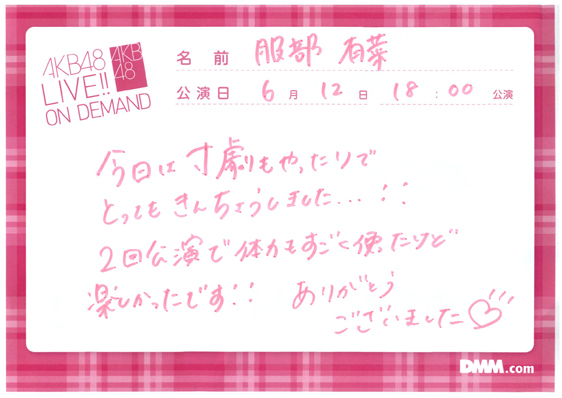 AKB48
LIVE!!
ON DEMAND
AKB
48
名前 服部 有菜
公演日 6月12日 18:00 公演
今日は寸劇もやったりで
とってもきんちょうしました...!!
2回公演で体力もすごく使ったけど
楽しかったです!! ありがとう
ございました♡
DMM.com